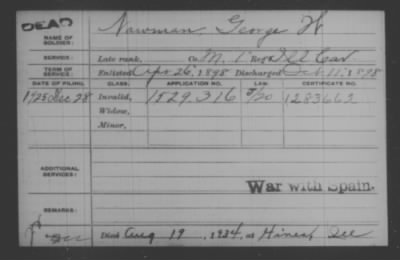 DEAD
NAME OF SOLDIER: Nawman, George W
SERVICE: Late rank, Co. M, 1 Reg't Ill Cav.
TERM OF SERVICE: Enlisted Apr 26, 1898 Discharged Oct 11, 1898
DATE OF FILING. CLASS. APPLICATION NO. LAW. CERTIFICATE NO.
1925 Dec 28 Invalid, 1529.316 5/20 1283663
Widow,
Minor,
ADDITIONAL SERVICES:
War with Spain.
REMARKS:
Died Aug 19, 1934, at Hines, Ill